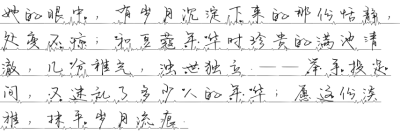 她的眼中，有岁月沉淀下来的那份恬静，
处变不惊；和豆蔻年华时珍贵的满池清
澈，几分稚气，浊世独立——举手投足
间，又迷乱了多少人的年华；愿这份淡
雅，抹平岁月流痕。